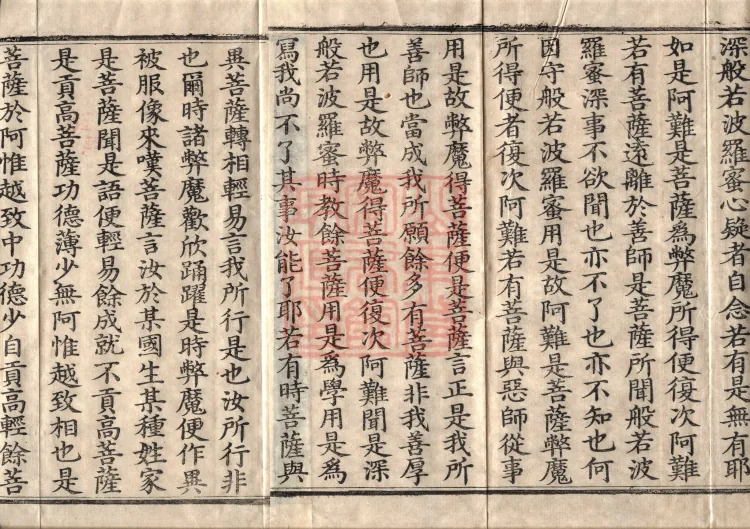 深般若波羅蜜心疑者自念若有是無有耶
如是阿難是菩薩爲弊魔所得便復次阿難
若有菩薩遠離於善師是菩薩所聞般若波
羅蜜深事不欲聞也亦不了也亦不知也何
因守般若波羅蜜用是故阿難是菩薩弊魔
所得便者復次阿難若有菩薩與惡師從事
用是故弊魔得菩薩便是菩薩言正是我所
善師也當成我所願餘多有菩薩非我善厚
也用是故弊魔得菩薩便復次阿難聞是深
般若波羅蜜時教餘菩薩用是爲學用是爲
寫我尚不了其事汝能了耶若有時菩薩與
異菩薩轉相輕易言我所行是也汝所行非
也爾時諸弊魔歡欣踊躍是時弊魔便作異
被服像來嘆菩薩言汝於某國生某種姓家
是菩薩聞是語便輕易餘成就不貢高菩薩
是貢高菩薩功德薄少無阿惟越致相也是
菩薩於阿惟越致中功德少自貢高輕餘菩